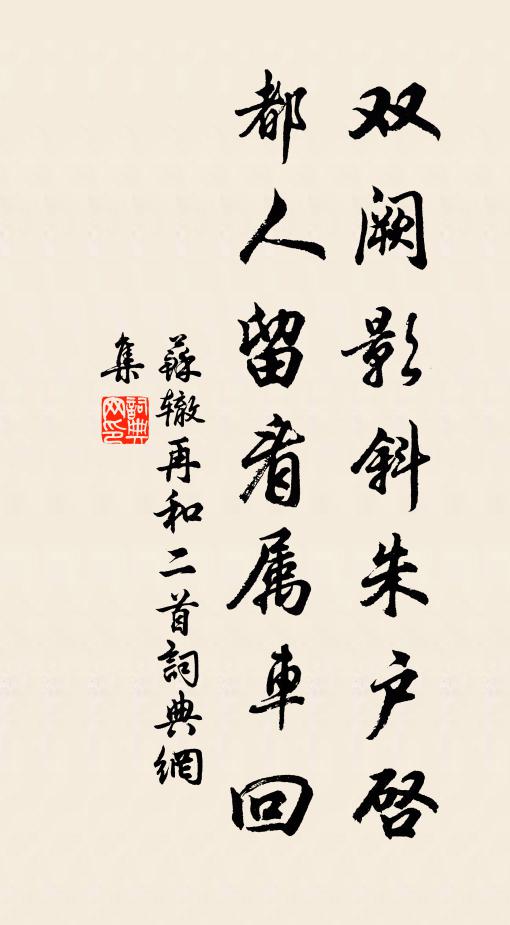 双阙影斜朱户启
都人留看属車回
蘇辙再和二首詞典網
集
詞典网印